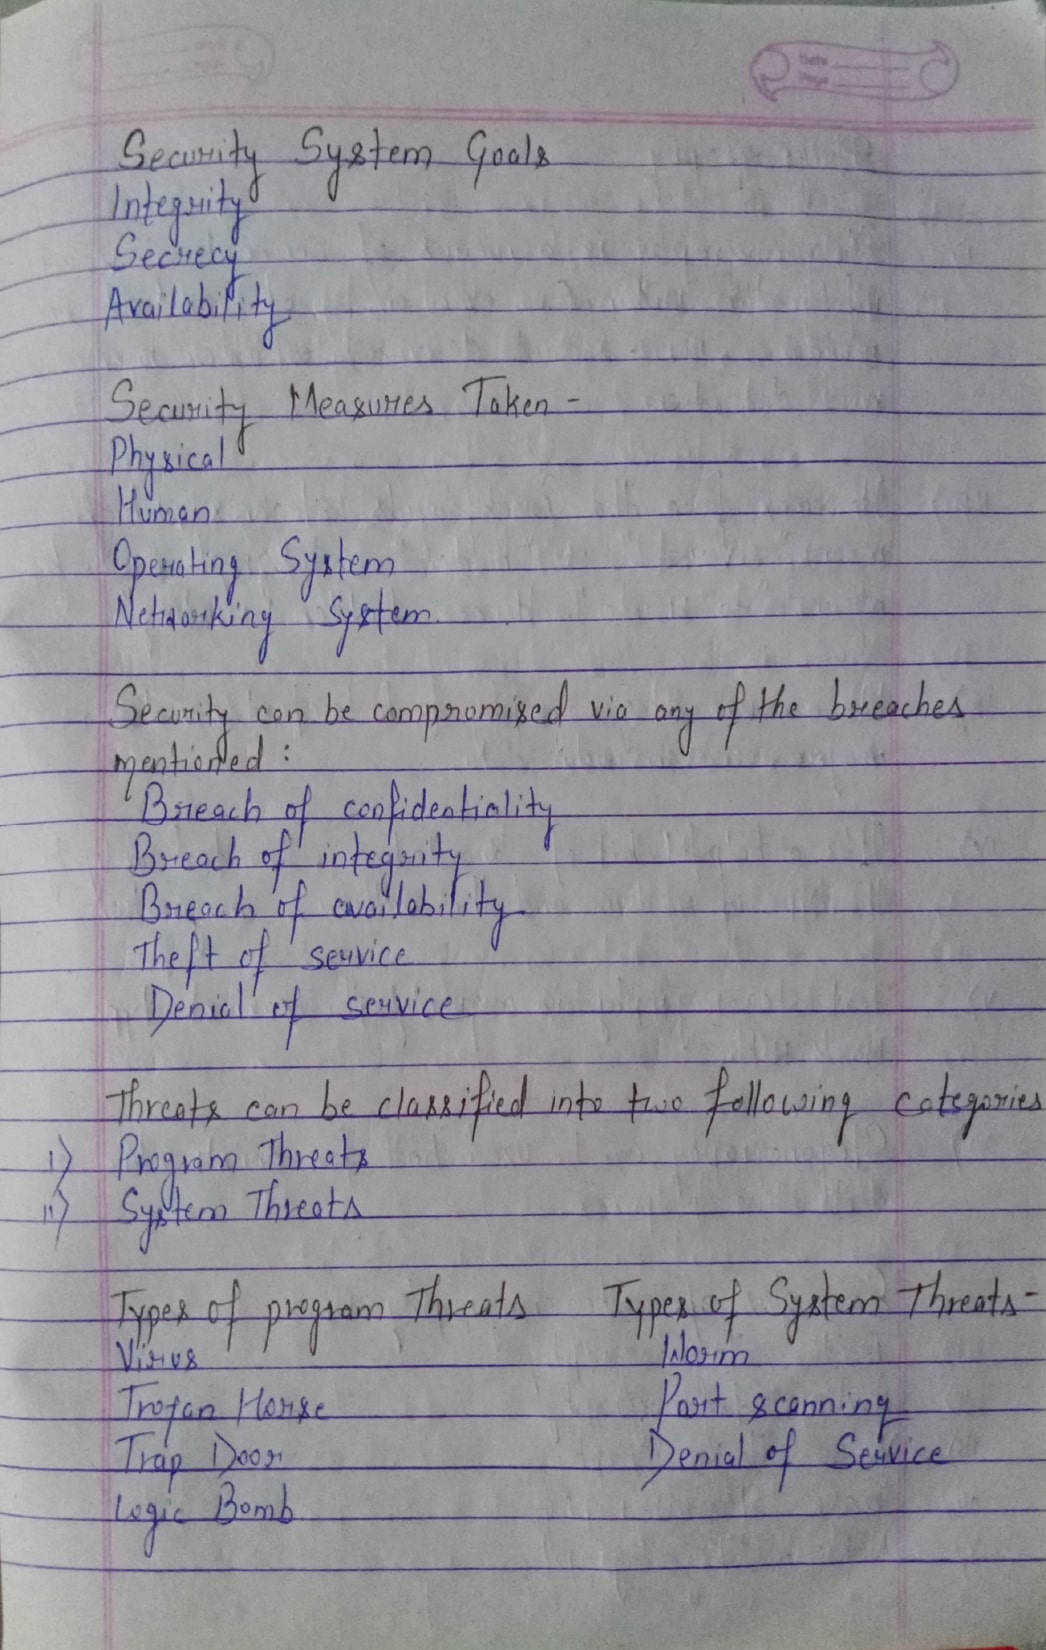 Date
Page
Security System Goals
Integrity
Secrecy
Availability
Security Measures Taken -
Physical
Human
Operating System
Networking System
Security can be compromised via any of the breaches
mentioned :
Breach of confidentiality
Breach of integrity
Breach of availability
Theft of service
Denial of service
Threats can be classified into two following categories
i) Program Threats
ii) System Threats
Types of program Threats
Virus
Trojan Horse
Trap Door
Logic Bomb
Types of System Threats -
Worm
Port scanning
Denial of Service